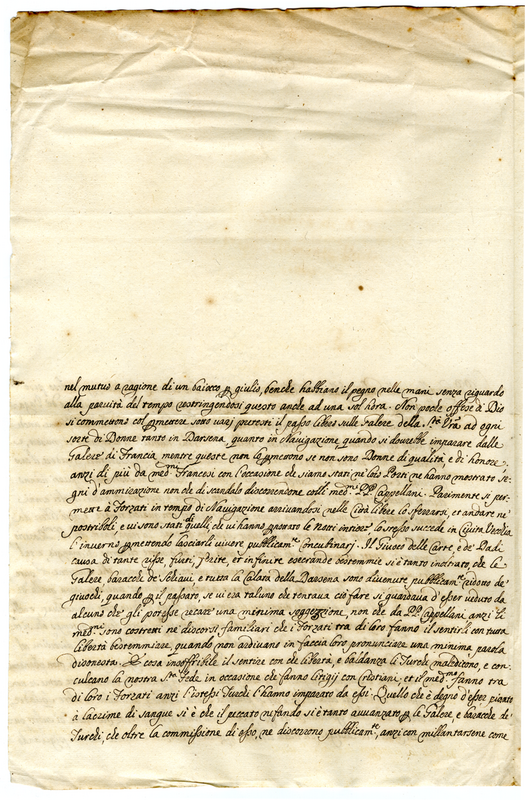 nel mutuo a ragione di un baiocco per giulio, benche habbiano il pegno nelle mani senza riguardo
alla parvità del tempo restringendosi questo anche ad una sol hora. Non poche offese à Dio
si commettono col permettere sotto varij pretesti il passo libero sulle Galere della Stà Vrã ad ogni
sorte di Donne tanto in Darsena, quanto in Navigazione quando si dovrebbe imparare dalle
Galere di Francia mentre queste non la permettono se non sono Donne di qualità, e di honore;
anzi di più da medmi Francesi con l'occasione che siamo stati ne' loro Porti ne hanno mostrato se-
gni d'ammirazione non che di scandalo discorrendone colli medmi PP. Cappellani. Parimente si per-
mette à Forzati in tempo di Navigazione arrivandosi nelle Città libere lo sferrarsi, et andare ne'
postriboli, e vi sono stati di quelli che vi hanno pernottato le notti intiere lo stesso succede in Civita Vecchia
l'inverno permettendo lasciarli vivere pubblicamte concubinarj. Il Giuoco delle Carte, e de' Dadi
causa di tante risse, furti, ferite, et infinite esecrande bestemmie si è tanto inoltrato, che le
Galere, baracche de' Schiavi, e tutta la Calata della Darsena sono divenute pubblicamte ridotto de'
giuochi, quando per il passato, se vi era taluno che tentava ciò fare si guardava d'esser veduto da
alcuno che gli potesse recare una minima soggezzione, non che da PP. Cappellani anzi li
medmi sono costretti ne' discorsi familiari che i Forzati tra di loro fanno il sentirli con tutta
libertà bestemmiare, quando non ardivano in faccia loro pronunciare una minima parola
disonesta. È cosa insoffribile il sentire con che libertà, e baldanza li Turchi maledicono, e con-
culcano la nostra Sta Fede in occasione che fanno litigij con cristiani, et il medmo fanno tra
di loro i Forzati anzi l'istessi Turchi l'hanno imparato da essi. Quello che è degno d'esser pianto
à lacrime di sangue si è che il peccato nefando si è tanto avvanzato per le Galere, e baracche de'
Turchi, che oltre la commissione di esso, ne discorrono pubblicamte, anzi con millantarsene come